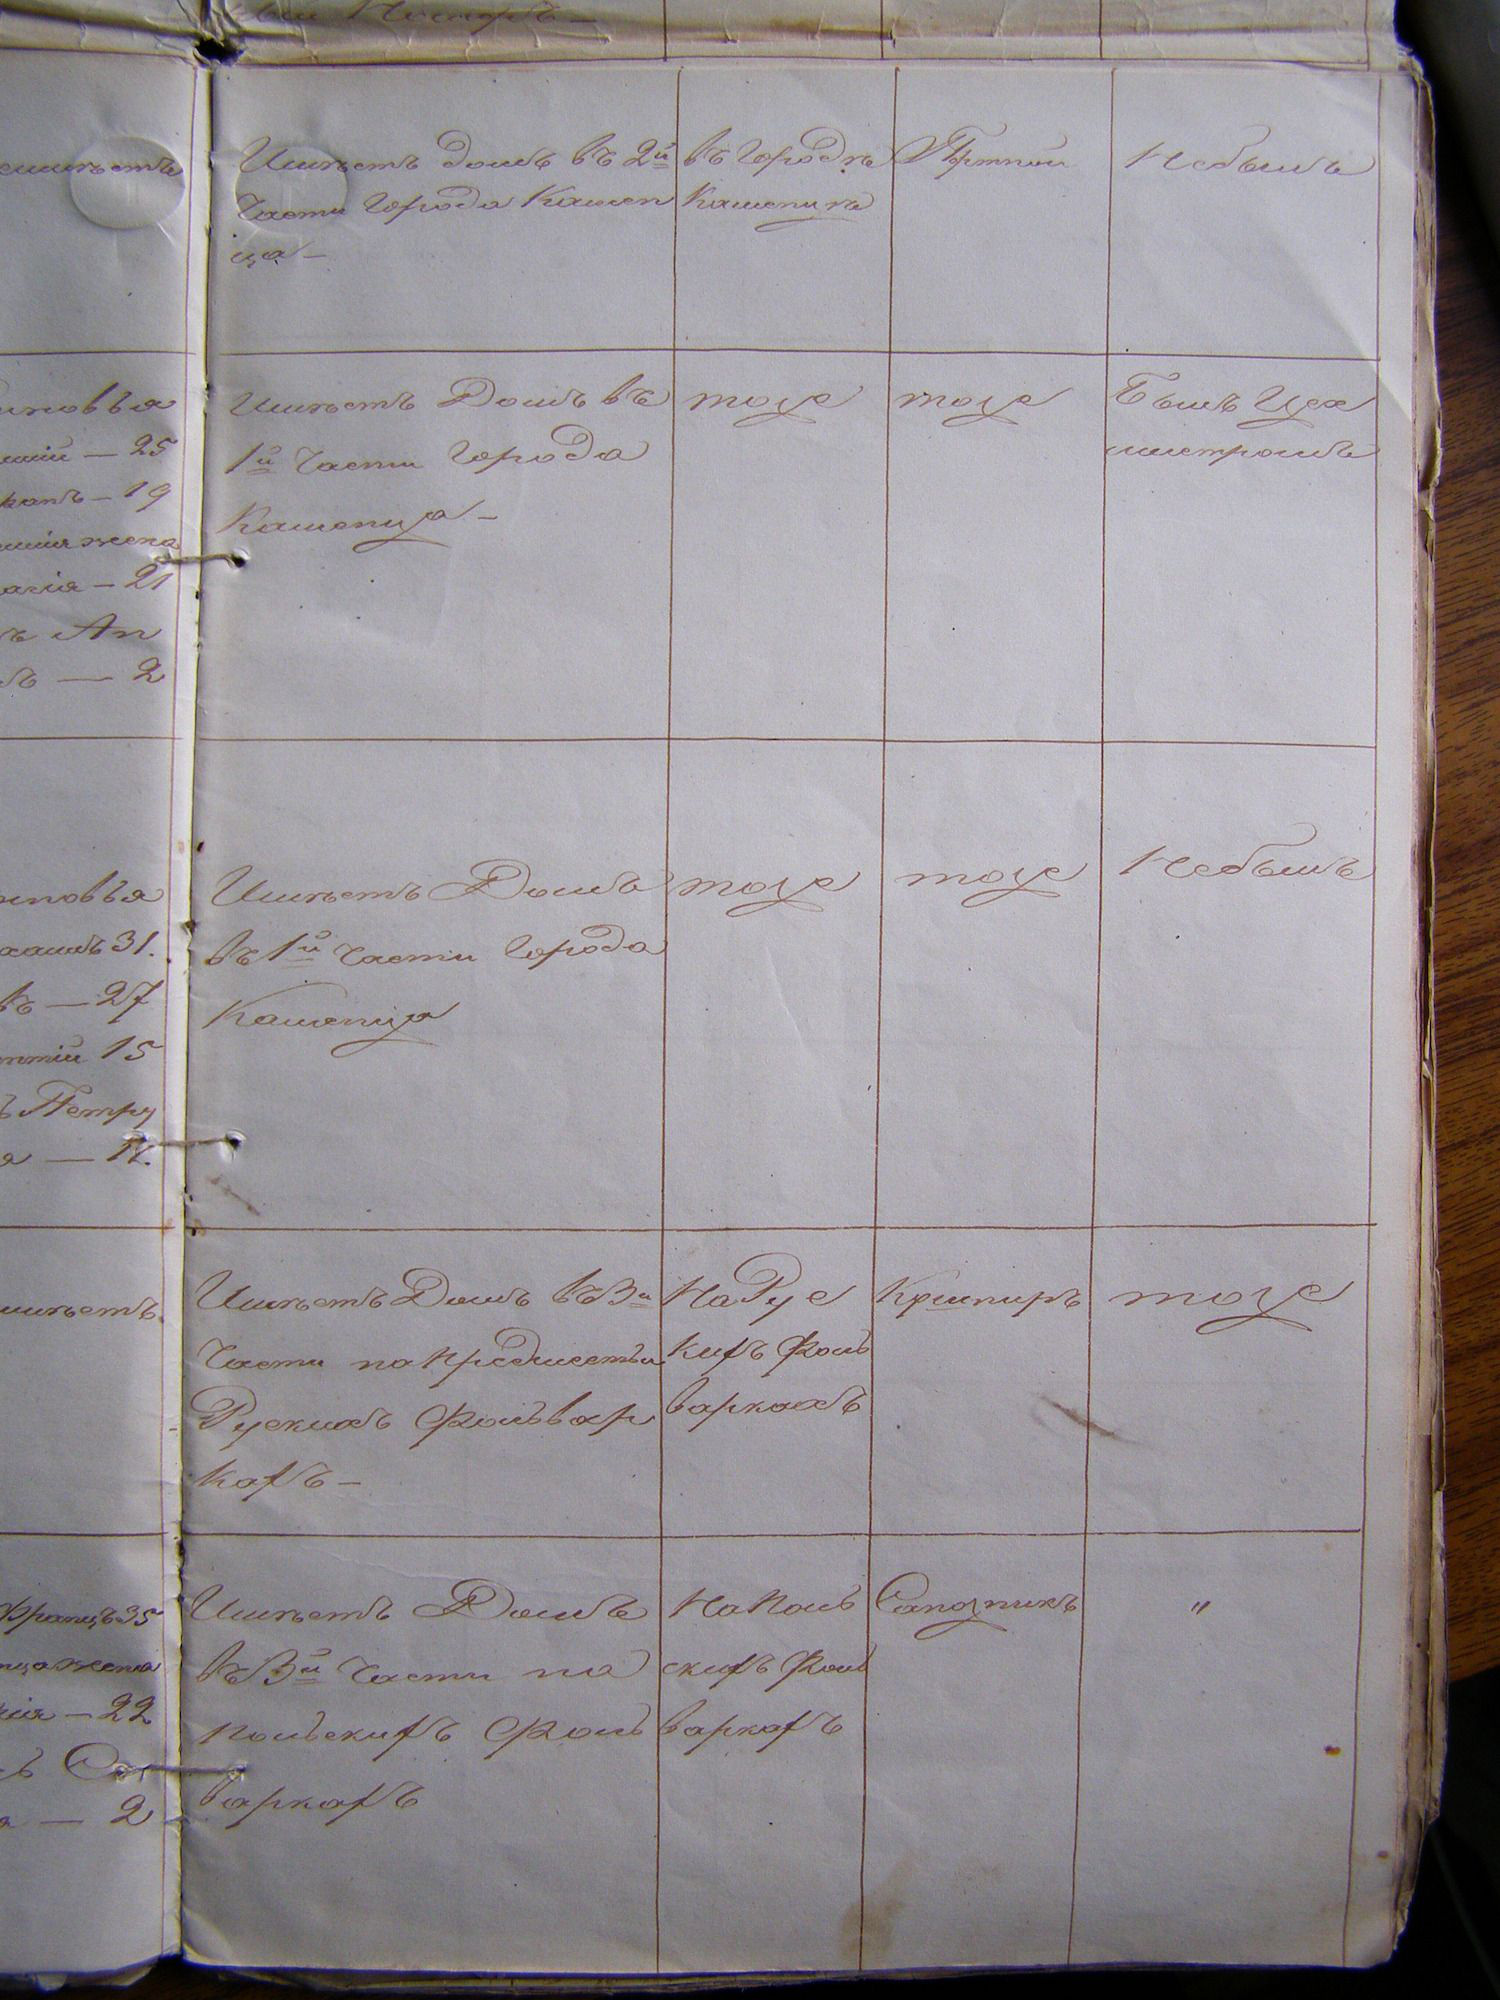 Имѣетъ домъ въ 2й
части города Камен
ца –
въ городѣ
Каменцѣ
Небылъ
новья
25
19
жена
21
Ап
2
Имѣетъ Домъ въ
1й части города
Каменца –
тоже
тоже
Былъ Цех
мистромъ
новья
31.
27
15
Петру
Имѣетъ Домъ
въ 1й части города
Каменца
тоже
тоже
Небылъ
имѣетъ
Имѣетъ Домъ въ 3й
части на предместьи
Рускихъ Фольвар
кахъ –
На Рус
кихъ Фоль
варкахъ
тоже
Францъ 35
жена
22
2
Имѣетъ Домъ
въ 3й части на
польскихъ Фоль
варкахъ
На Поль
скихъ Фоль
варкахъ
Сапожникъ
"